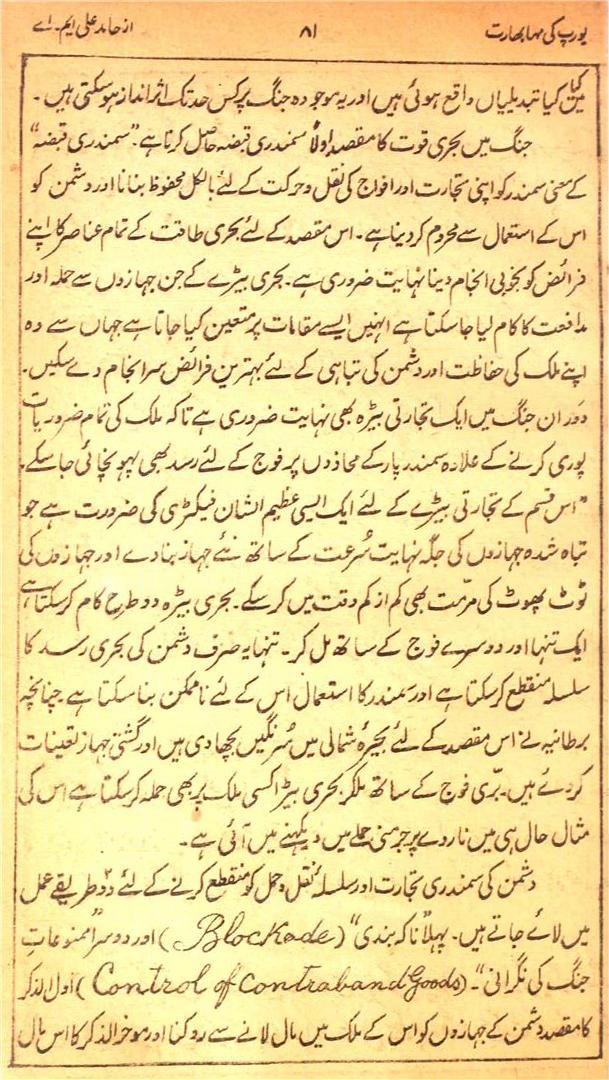 یورپ کی مہا بھارت ۸۱ از حامد علی ایم۔ اے
میں کیا کیا تبدیلیاں واقع ہوئی ہیں اور یہ موجودہ جنگ پر کس حد تک اثر انداز ہو سکتی ہیں۔
جنگ میں بحری قوت کا مقصد اولاً سمندری قبضہ حاصل کرنا ہے۔ "سمندری قبضہ"
کے معنی سمندر کو اپنی تجارت اور افواج کی نقل و حرکت کے لئے بالکل محفوظ بنانا اور دشمن کو
اس کے استعمال سے محروم کر دینا ہے۔ اس مقصد کے لئے بحری طاقت کے تمام عناصر کا اپنے
فرائض کو بخوبی انجام دینا نہایت ضروری ہے۔ بحری بیڑے کے جن جہازوں سے حملہ اور
مدافعت کا کام لیا جا سکتا ہے انہیں ایسے مقامات پر متعین کیا جاتا ہے جہاں سے وہ
اپنے ملک کی حفاظت اور دشمن کی تباہی کے لئے بہترین فرائض سر انجام دے سکیں۔
دوران جنگ میں ایک تجارتی بیڑہ بھی نہایت ضروری ہے تاکہ ملک کی تمام ضروریات
پوری کرنے کے علاوہ سمندر پار کے محاذوں پر فوج کے لئے رسد بھی پہونچائی جا سکے۔
اس قسم کے تجارتی بیڑے کے لئے ایک ایسی عظیم الشان فیکٹری کی ضرورت ہے جو
تباہ شدہ جہازوں کی جگہ نہایت سُرعت کے ساتھ نئے جہاز بنا دے اور جہازوں کی
ٹوٹ پھوٹ کی مرمّت بھی کم از کم وقت میں کر سکے۔ بحری بیڑہ دو طرح کام کر سکتا ہے،
ایک تنہا اور دوسرے فوج کے ساتھ مل کر۔ تنہا یہ صرف دشمن کی بحری رسد کا
سلسلہ منقطع کر سکتا ہے اور سمندر کا استعمال اس کے لئے ناممکن بنا سکتا ہے چنانچہ
برطانیہ نے اس مقصد کے لئے بحیرۂ شمالی میں سُرنگیں بچھا دی ہیں اور گشتی جہاز تعینات
کر دئے ہیں۔ بَرّی فوج کے ساتھ ملکر بحری بیڑا کسی ملک پر بھی حملہ کر سکتا ہے اس کی
مثال حال ہی میں ناروے پر جرمنی حملے میں دیکھنے میں آئی ہے۔
دشمن کی سمندری تجارت اور سلسلۂ نقل و حمل کو منقطع کرنے کے لئے دو طریقے عمل
میں لائے جاتے ہیں۔ پہلا "ناکہ بندی" (Blockade) اور دوسرا "ممنوعاتِ
جنگ کی نگرانی"۔ (Control of contraband Goods) اول الذکر
کا مقصد دشمن کے جہازوں کو اس کے ملک میں مال لانے سے روکنا اور موخر الذکر کا اس مال